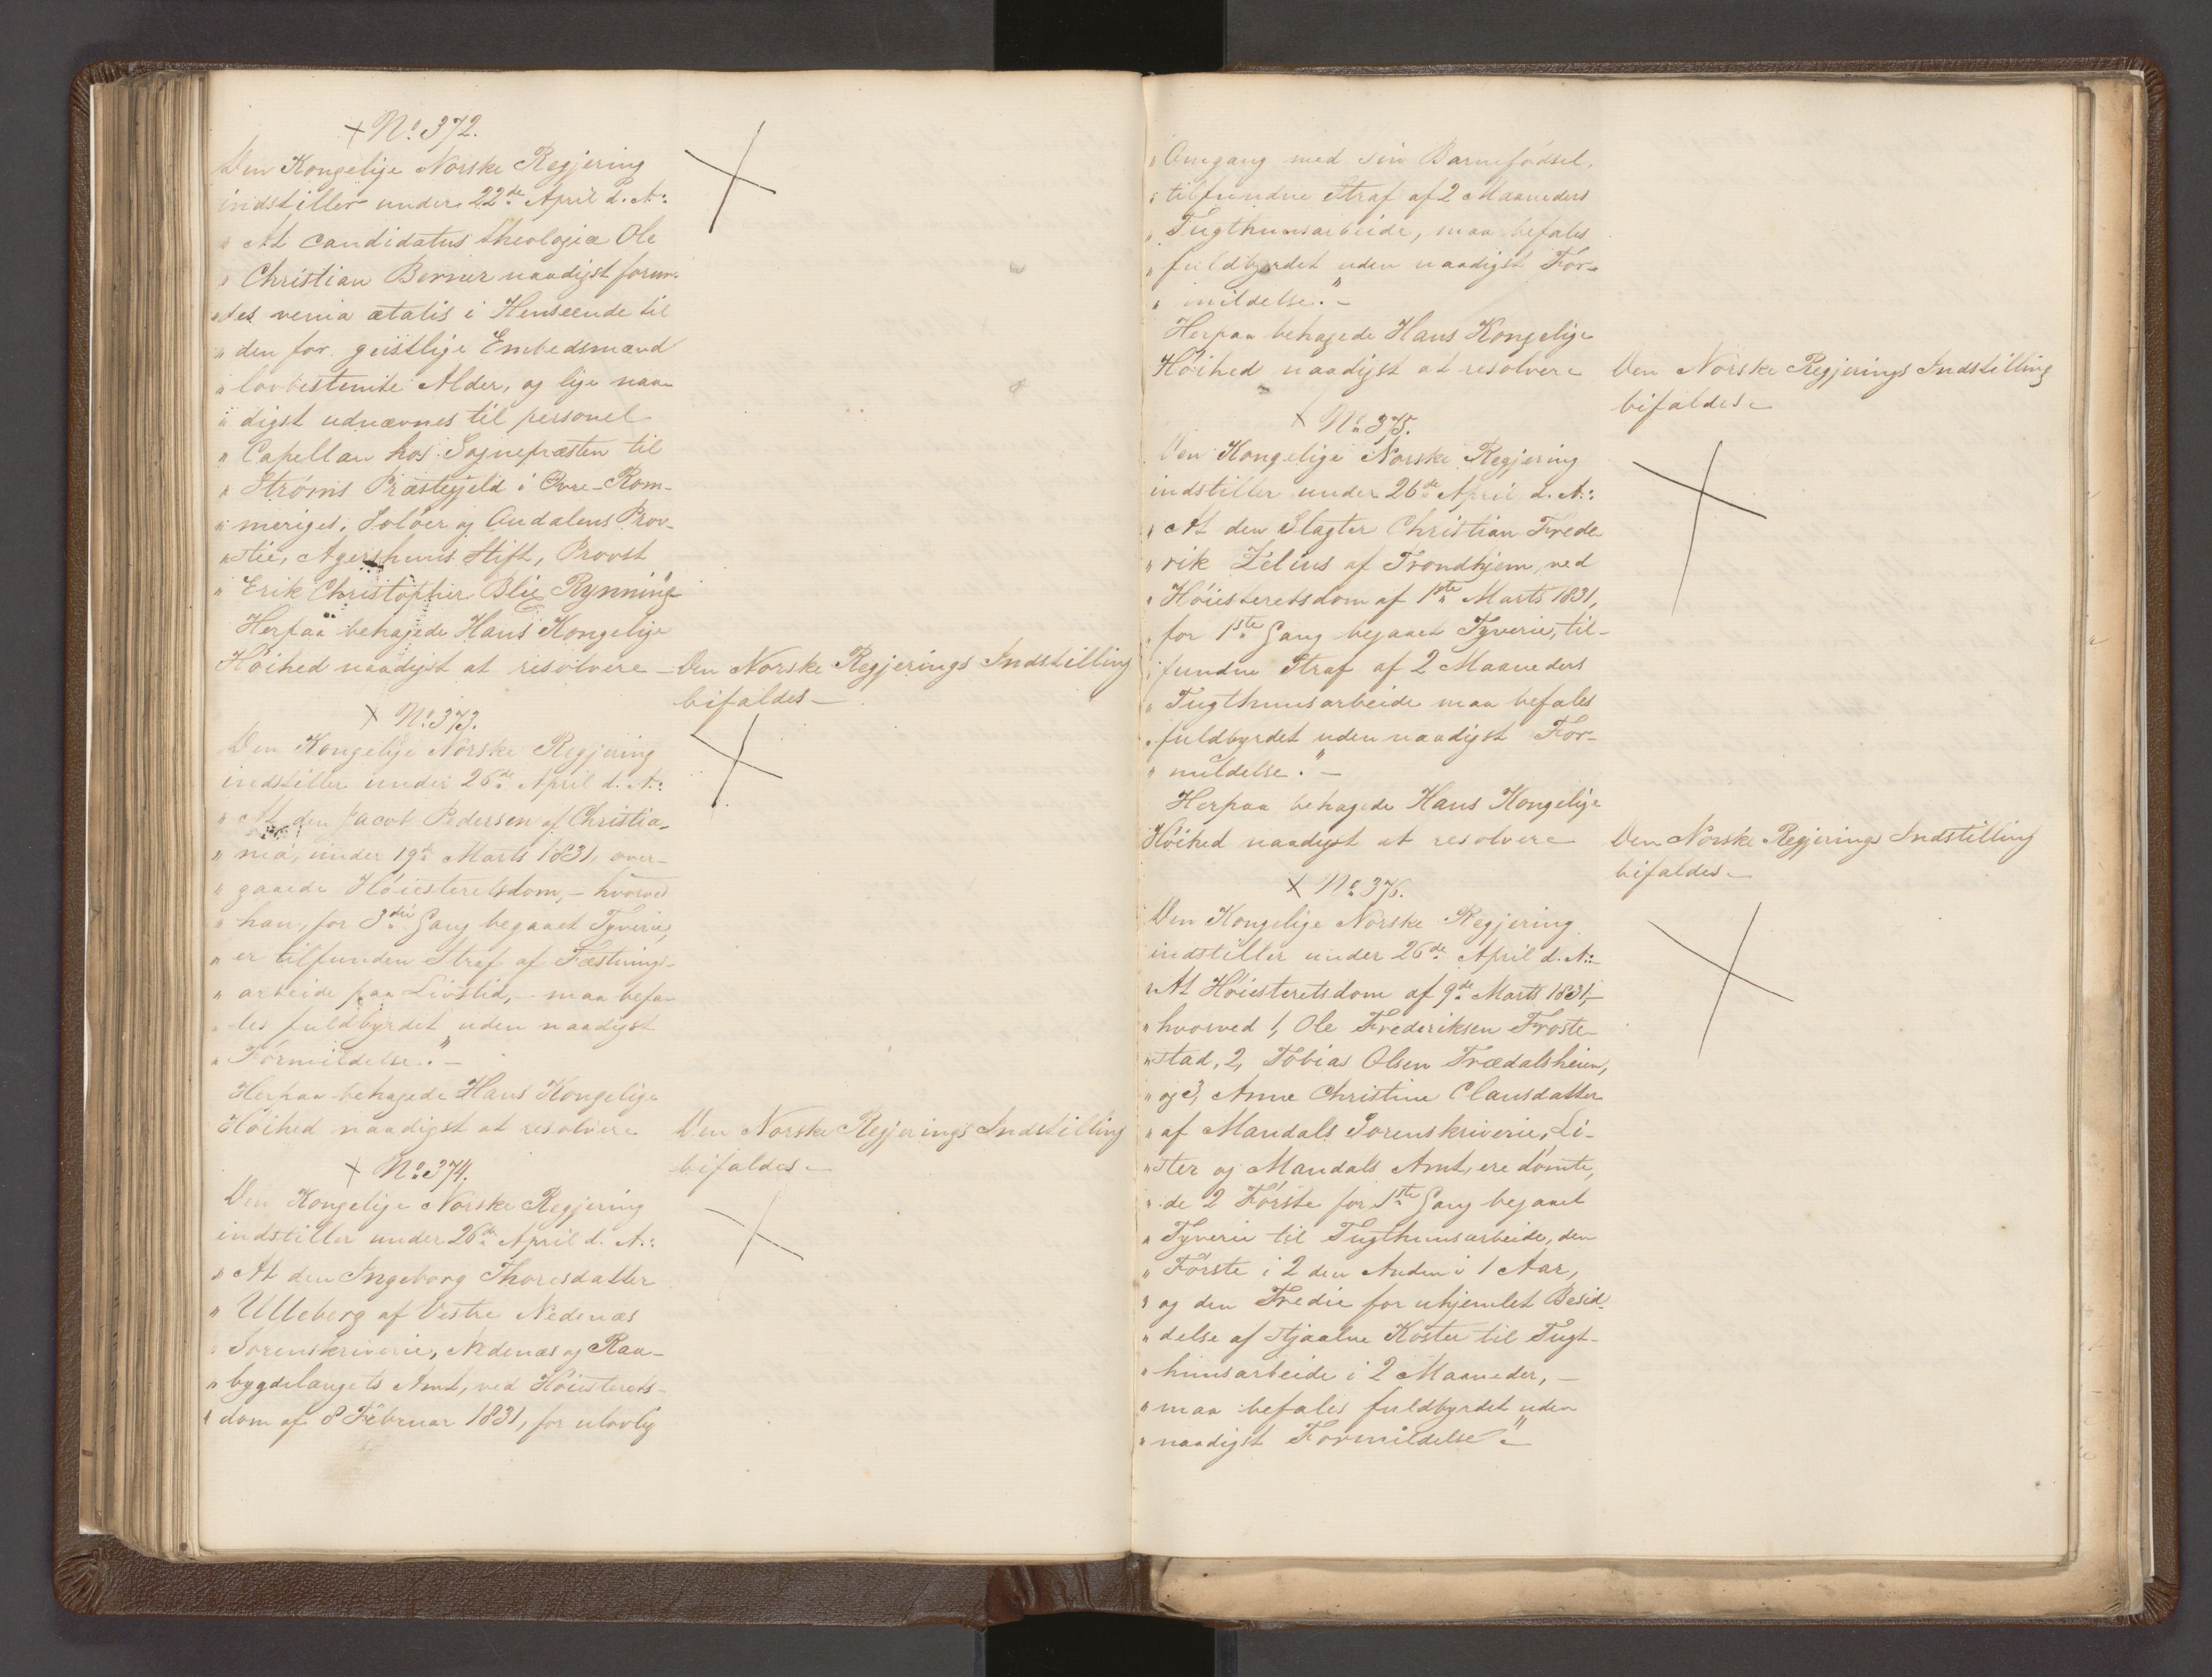 + No. 372.
Den Kongelige Norske Regjering
indstiller under 22de April d. A.:
" At candidatus theologiæ Ole
" Christian Berner naadigst forun-
" des venia ætatis i Henseende til
" den for geistlige Embedsmænd
" lovbestemte Alder, og lige naa-
" digst udnævnes til personel
" Capellan hos Sognepræsten til
" Ströms Præstegjeld i Övre-Rom-
" meriges, Solöer og Oudalens Prov-
" stie, Agershuus Stift, Provst
" Erik Christopher Blix Rynning"
Herpaa behagede Hans Kongelige
Höihed naadigst at resolvere – Den Norske Regjerings Indstilling
bifaldes –
+ No. 373.
Den Kongelige Norske Regjering
indstiller under 26de April d. A.:
" At den Jacob Pedersen af Christia-
" nia, under 19de Marts 1831, over-
" gaaede Höiesteretsdom, – hvorved
" han, for 3die Gang begaaet Tyverie,
" er tilfunden Straf af Fæstnings-
" arbeide paa Livstid, – maa befa-
" les fuldbyrdet uden naadigst
" Formildelse." –
Herpaa behagede Hans Kongelige
Höihed naadigst at resolvere Den Norske Regjerings Indstilling
bifaldes –
+ No. 374.
Den Kongelige Norske Regjering
indstiller under 26de April d. A.:
" At den Ingeborg Thoresdatter
" Ulleberg af Vestre Nedenæs
" Sorenskriverie, Nedenæs og Raa-
" bygdelaugets Amt, ved Höiesterets-
" dom af 8 Februar 1831, for ulovlig
" Omgang med sin Barnefödsel,
" tilfundne Straf af 2 Maaneders
" Tugthuusarbeide, maa befales
" fuldbyrdet uden naadigst For-
" mildelse." –
Herpaa behagede Hans Kongelige
Höihed naadigst at resolvere Den Norske Regjerings Indstilling
bifaldes –
+ No. 375.
Den Kongelige Norske Regjering
indstiller under 26de April d. A.:
" At den Slagter Christian Frede-
" rik Zelius af Trondhjem, ved
" Höiesteretsdom af 1ste Marts 1831,
" for 1ste Gang begaaet Tyverie, til-
" fundne Straf af 2 Maaneders
" Tugthuusarbeide maa befales
" fuldbyrdet uden naadigst For-
" mildelse." –
Herpaa behagede Hans Kongelige
Höihed naadigst at resolvere Den Norske Regjerings Indstilling
bifaldes –
+ No. 376.
Den Kongelige Norske Regjering
indstiller under 26de April d. A.:
" At Höiesteretsdom af 9de Marts 1831, –
" hvorved 1, Ole Frederiksen Froste-
" stad, 2, Tobias Olsen Trædalsheien,
" og 3, Anne Christine Clausdatter
" af Mandals Sorenskriverie, Li-
" ster og Mandals Amt, ere dömte,
" de 2 Förste for 1ste Gang begaaet
" Tyverie til Tugthuusarbeide, den
" Förste i 2 den Anden i 1 Aar,
" og den Tredie for uhjemlet Besid-
" delse af stjaalne Koster til Tugt-
" huusarbeide i 2 Maaneder, –
" maa befales fuldbyrdet uden
" naadigst Formildelse" –